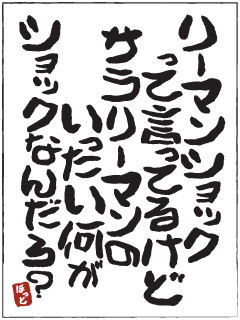 リーマンショック
って言ってるけど
サラリーマンの
いったい何が
ショックなんだろ?
ほっと